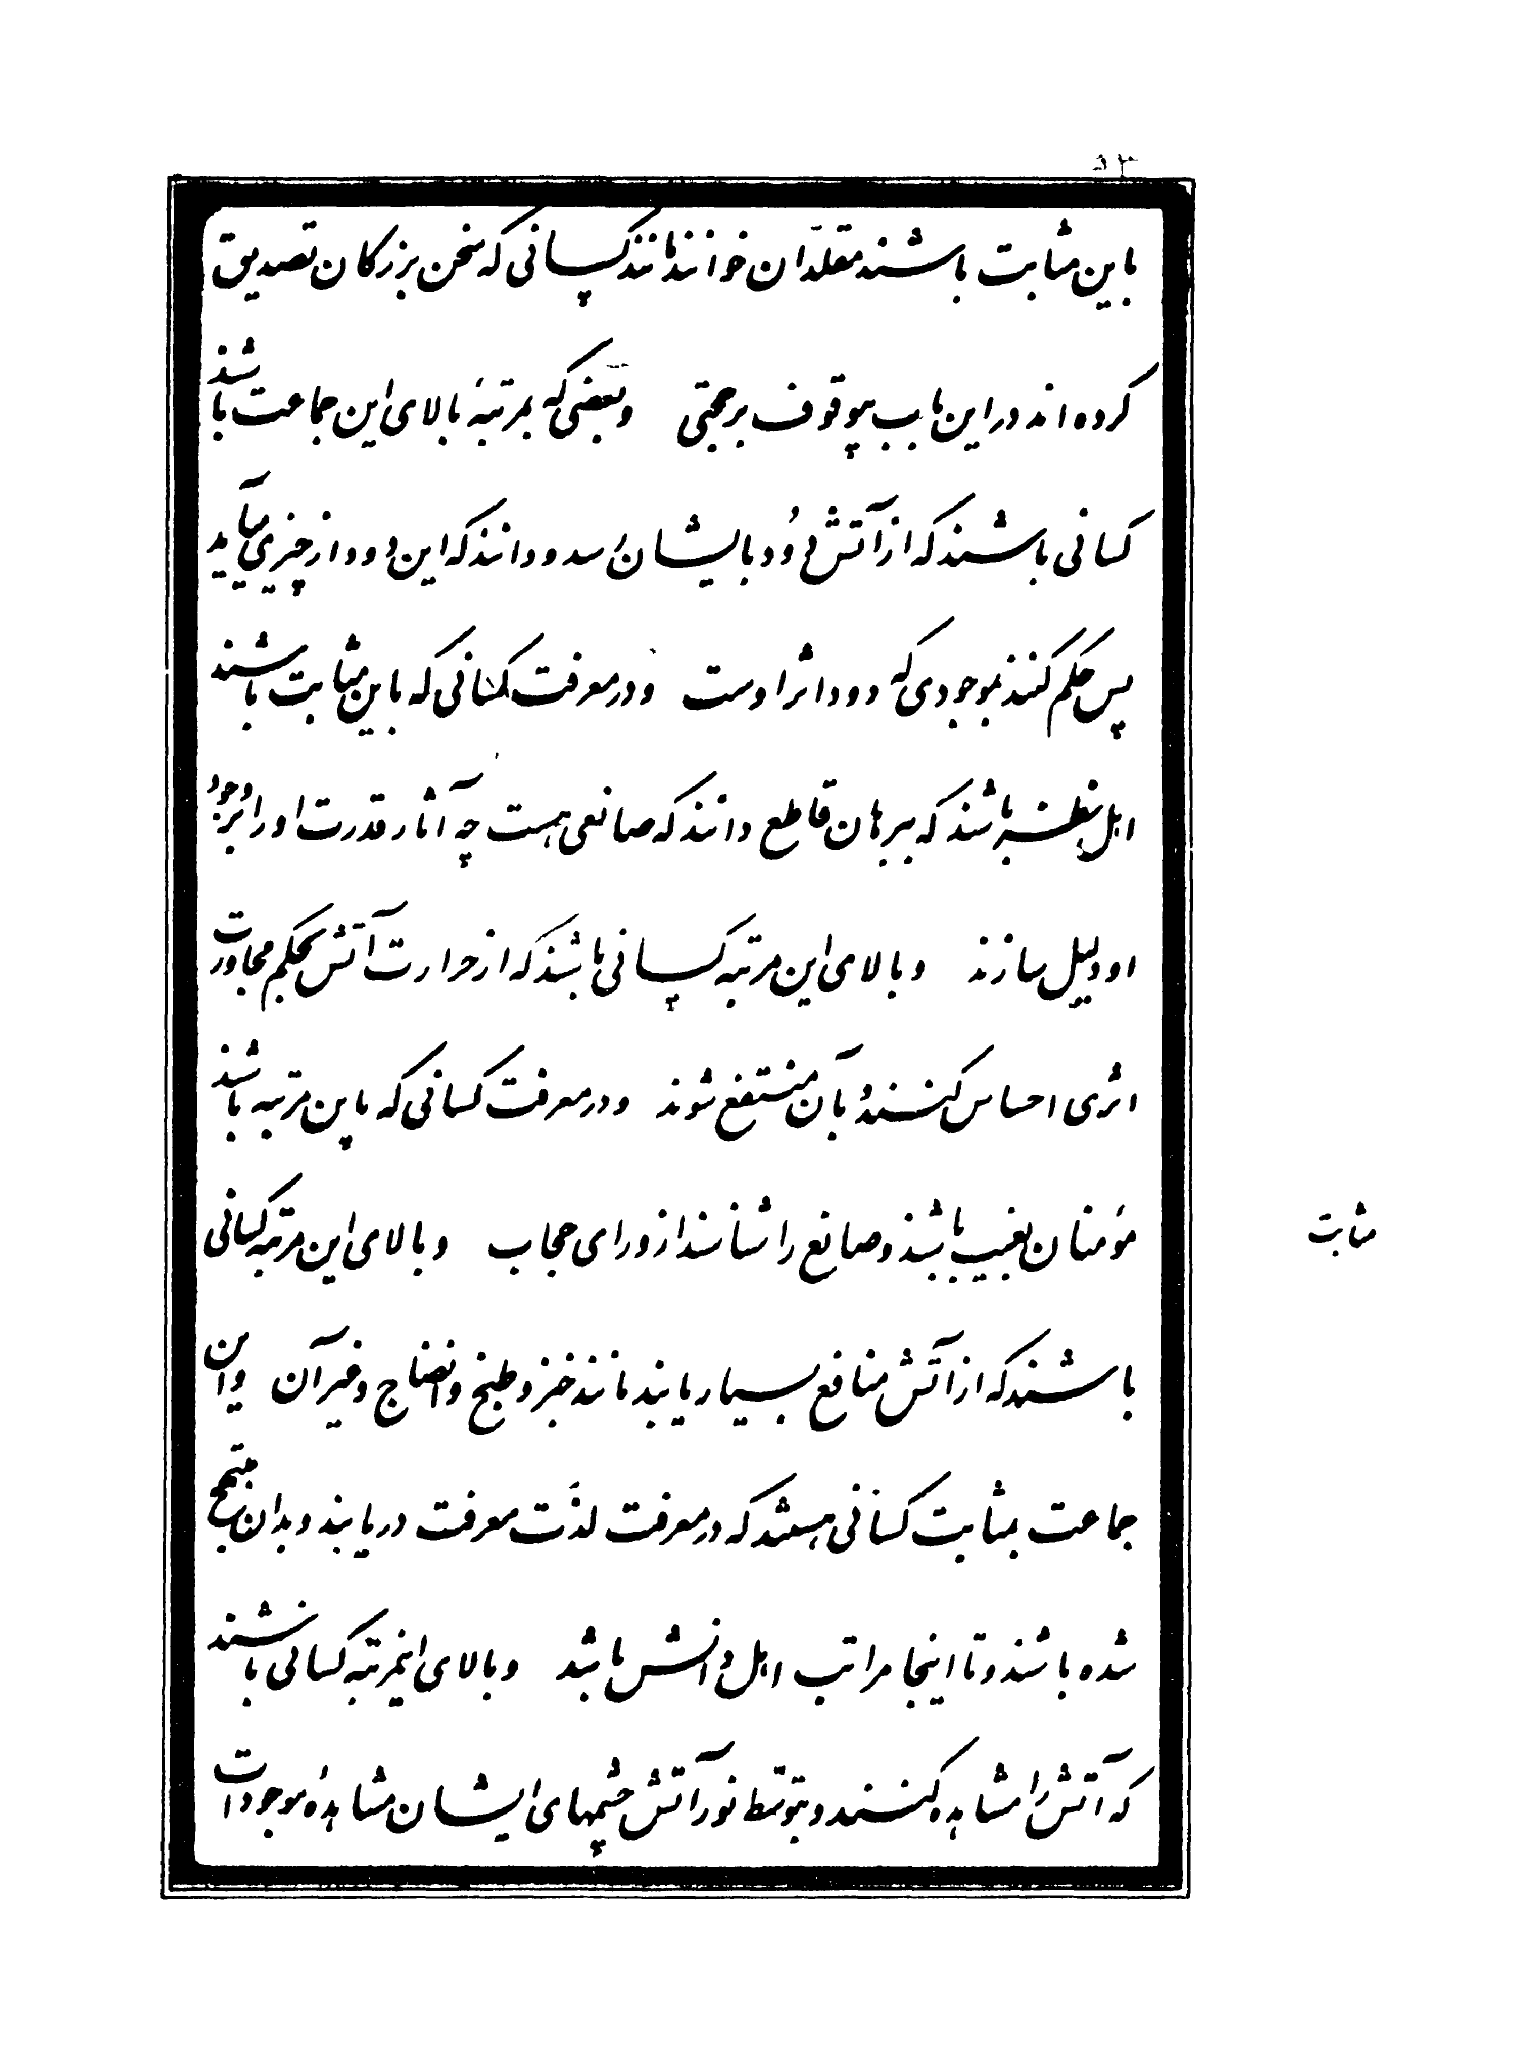 ٥٣
باین مثابت باشند مقلدّان خوانند مانند کسانی که سخن بزرکان تصدیق
کرده‌اند در این باب بی‌وقوف بر حجتی و بعضی که بمرتبهٔ بالای این جماعت باشند
کسانی باشند که از آتش دود بایشان رسد و دانند که این دود از چیزی میآید
پس حکم کنند بموجودی که دود اثر اوست و در معرفت کسانی که باین مثابت باشند
اهل نظر باشند که ببرهان قاطع دانند که صانعی هست چه آثار قدرت او را بر وجود
او دلیل سازند و بالای این مرتبه کسانی باشند که از حرارت آتش بحکم مجاورت
اثری احساس کنند و بآن منتفع شوند و در معرفت کسانی که باین مرتبه باشند
مؤمنان بغیب باشند و صانع را شناسند از ورای حجاب و بالای این مرتبه کسانی
مثابت
باشند که از آتش منافع بسیار یابند مانند خبز و طبخ و انضاج و غیر آن و این
جماعت بمثابت کسانی هستند که در معرفت لذّت معرفت دریابند و بدان مبتهج
شده باشند و تا اینجا مراتب اهل دانش باشد و بالای اینمرتبه کسانی باشند
که آتش را مشاهده کنند و بتوسّط نور آتش چشمهای ایشان مشاهدهٔ موجودات